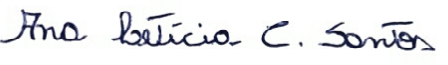 Ana Letícia C. Santos